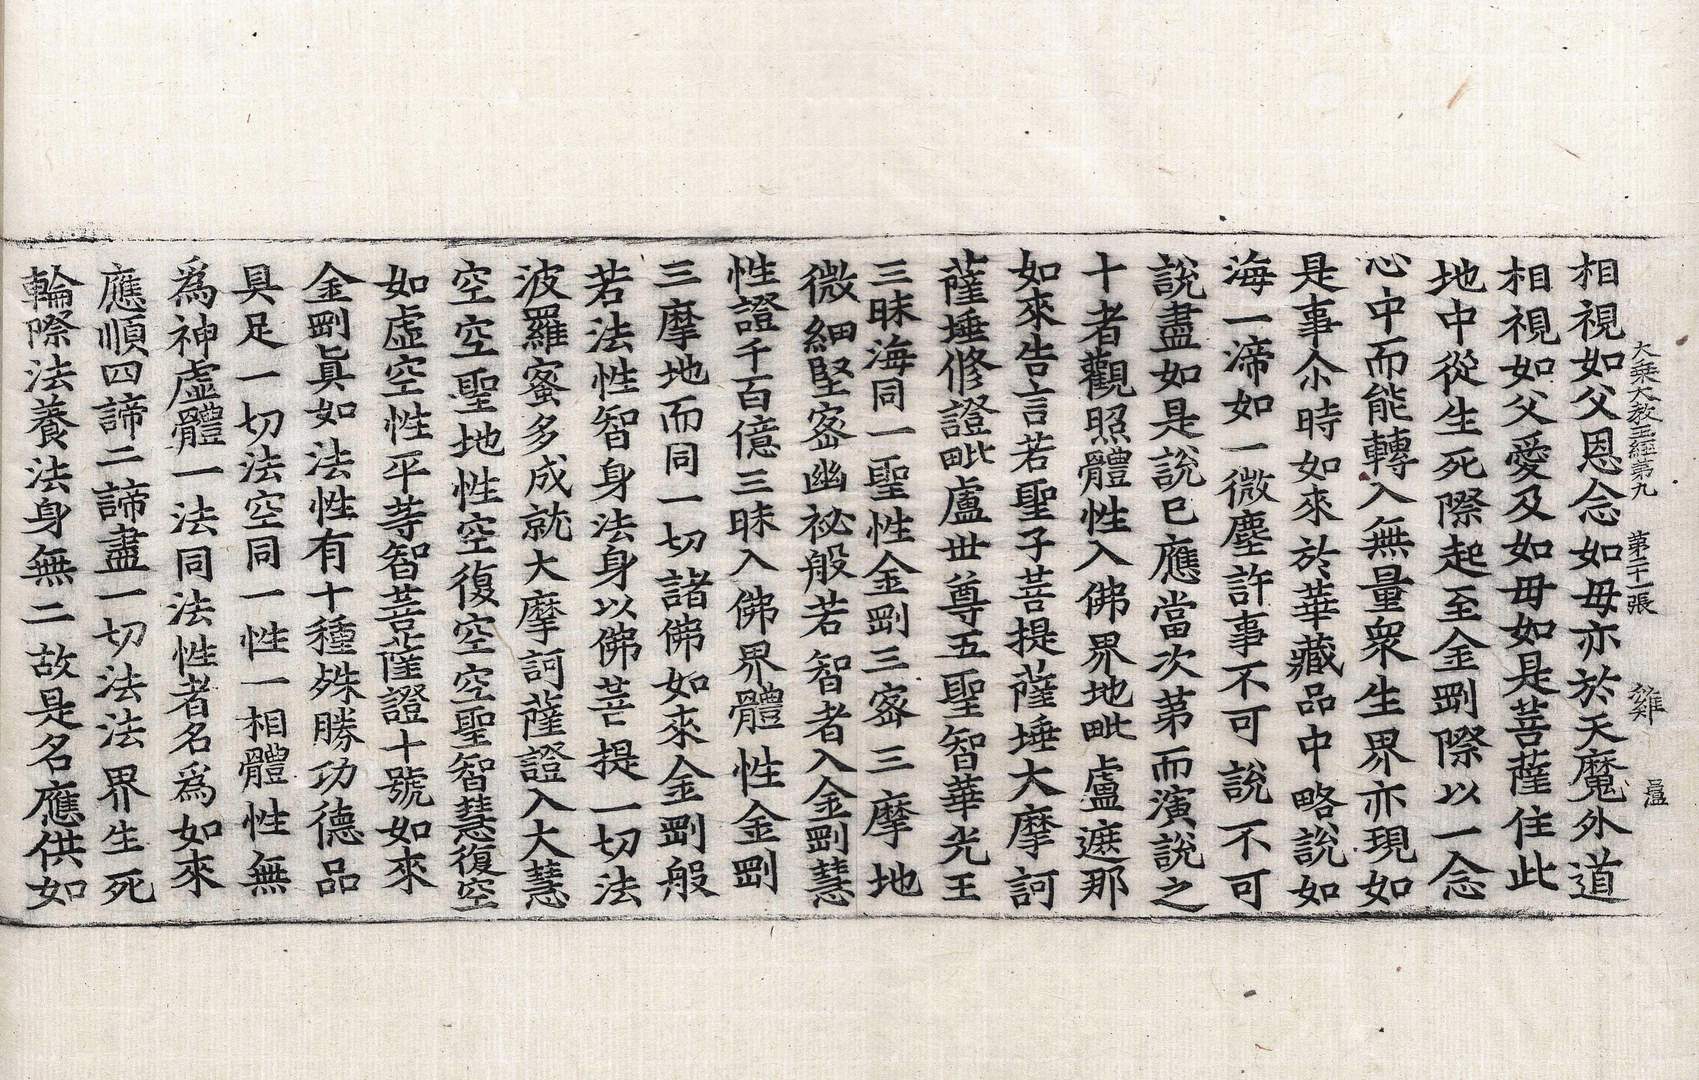 大乗大教王經第九　第二十一張　雞　昷
相視如父恩念如毋亦於天魔外道
相視如父愛及如毋如是菩薩住此
地中從生死際起至金剛際以一念
心中而能轉入無量衆生界亦現如
是事尒時如來於華藏品中略說如
海一渧如一微塵許事不可說不可
說盡如是說已應當次第而演說之
十者觀照體性入佛界地毗盧遮那
如來告言若聖子菩提薩埵大摩訶
薩埵修證毗盧世尊五聖智華光王
三昧海同一聖性金剛三宻三摩地
微細堅宻幽祕般若智者入金剛慧
性證千百億三昧入佛界體性金剛
三摩地而同一切諸佛如來金剛般
若法性智身法身以佛菩提一切法
波羅蜜多成就大摩訶薩證入大慧
空空聖地性空復空空聖智慧復空
如虛空性平等智菩薩證十號如來
金剛眞如法性有十種殊勝功德品
具足一切法空同一性一相體性無
爲神虛體一法同法性者名爲如來
應順四諦二諦盡一切法法界生死
輪際法養法身無二故是名應供如